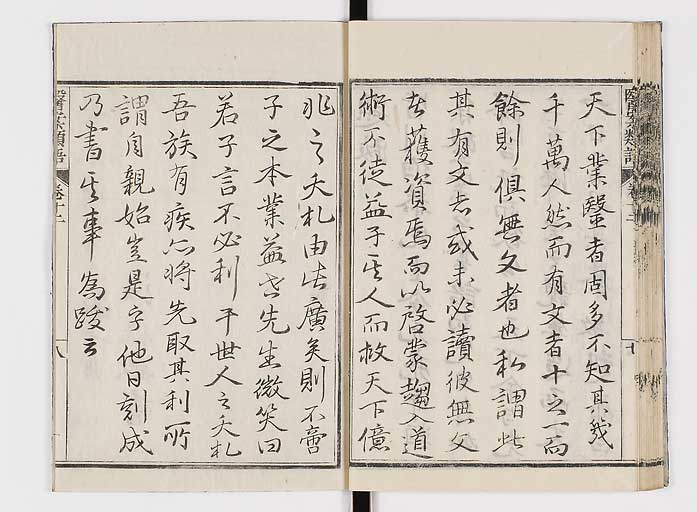 天下業醫者固多不知其幾
千萬人然而有文者十之一而
餘則俱無文者也私謂此
其有文者或未必讀彼無文
者獲資焉而以啓蒙趨入道
術不徒益子其人而救天下億
兆之夭札由此廣矣則不啻
子之本業益者先生微笑曰
若子言不必利于世人之夭札
吾族有疾亦將先取其利所
謂自親始豈是乎他日刻成
乃書其事為跋云
醫家類語
卷十二
八